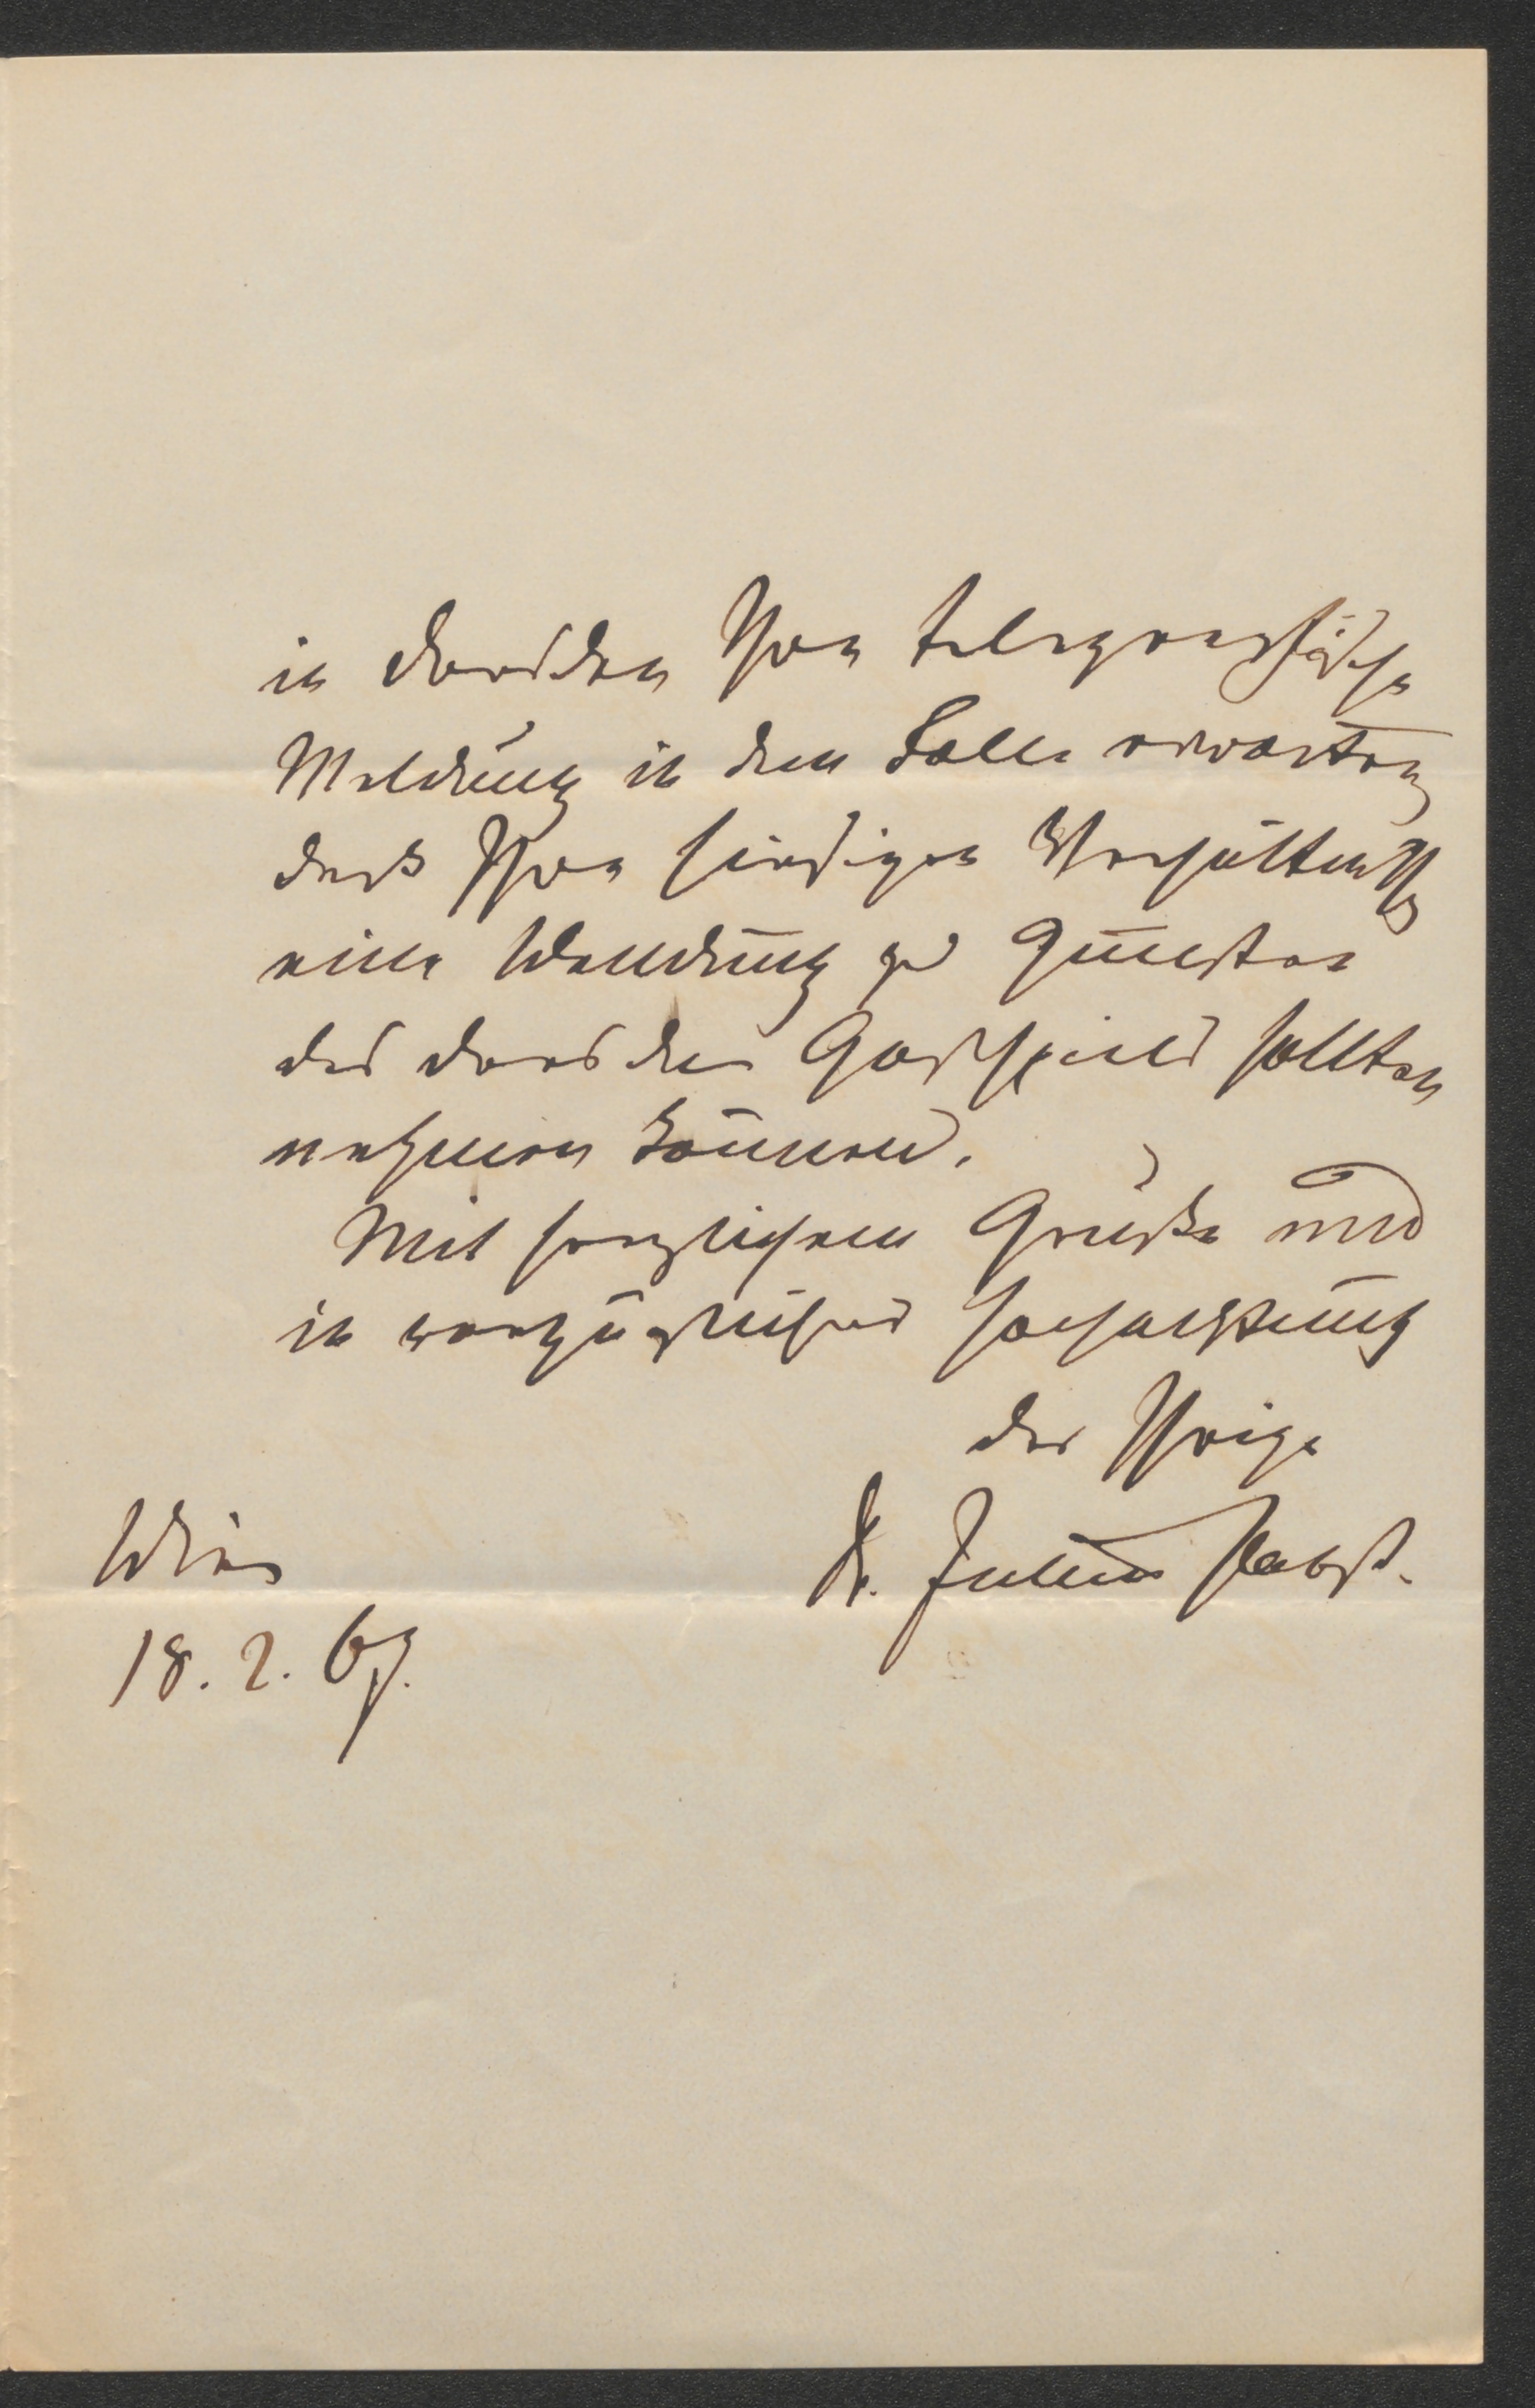 in Dresden Ihre telegraphische
Meldung in dem Falle erwarten
daß Ihre hiesigen Verhältnisse
eine Wendung zu Gunsten
des Dresdner Gastspiels sollten
nehmen können.
Mit herzlichem Gruße und
in vorzüglicher Hochachtung
der Ihrige
Dr. Julius Pabst.
Wien
18. 2. 67.